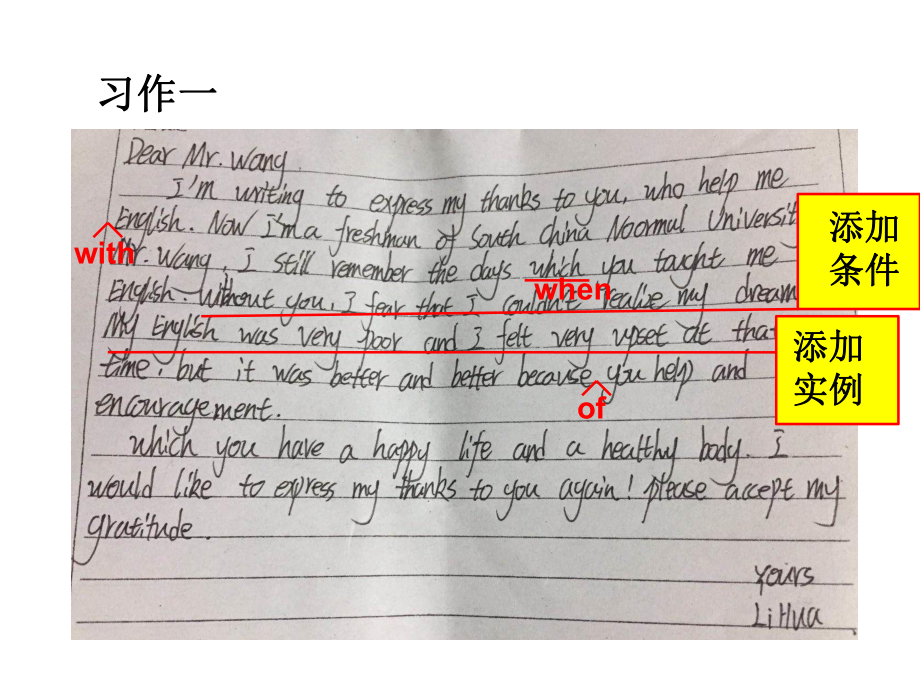 习作一
Dear Mr. Wang
I'm writing to express my thanks to you, who help me
添加
English. Now I'm a freshman of South China Noormal Universit
with
条件
Mr. Wang, I still remember the days which you taught me
when
English. Without you, I fear that I couldn't realize my dream
添加
My English was very poor and I felt very upset at that
time, but it was better and better because you help and
实例
of
encouragement.
which you have a happy life and a healthy body. I
would like to express my thanks to you again! please accept my
gratitude.
Yours
LiHua